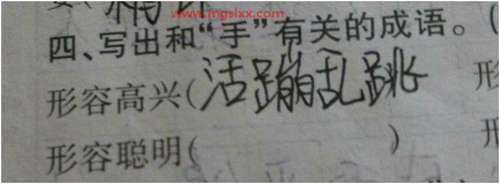 www.mgsixx.com
四、写出和“手”有关的成语。(
形容高兴(活蹦乱跳 形
形容聪明( )